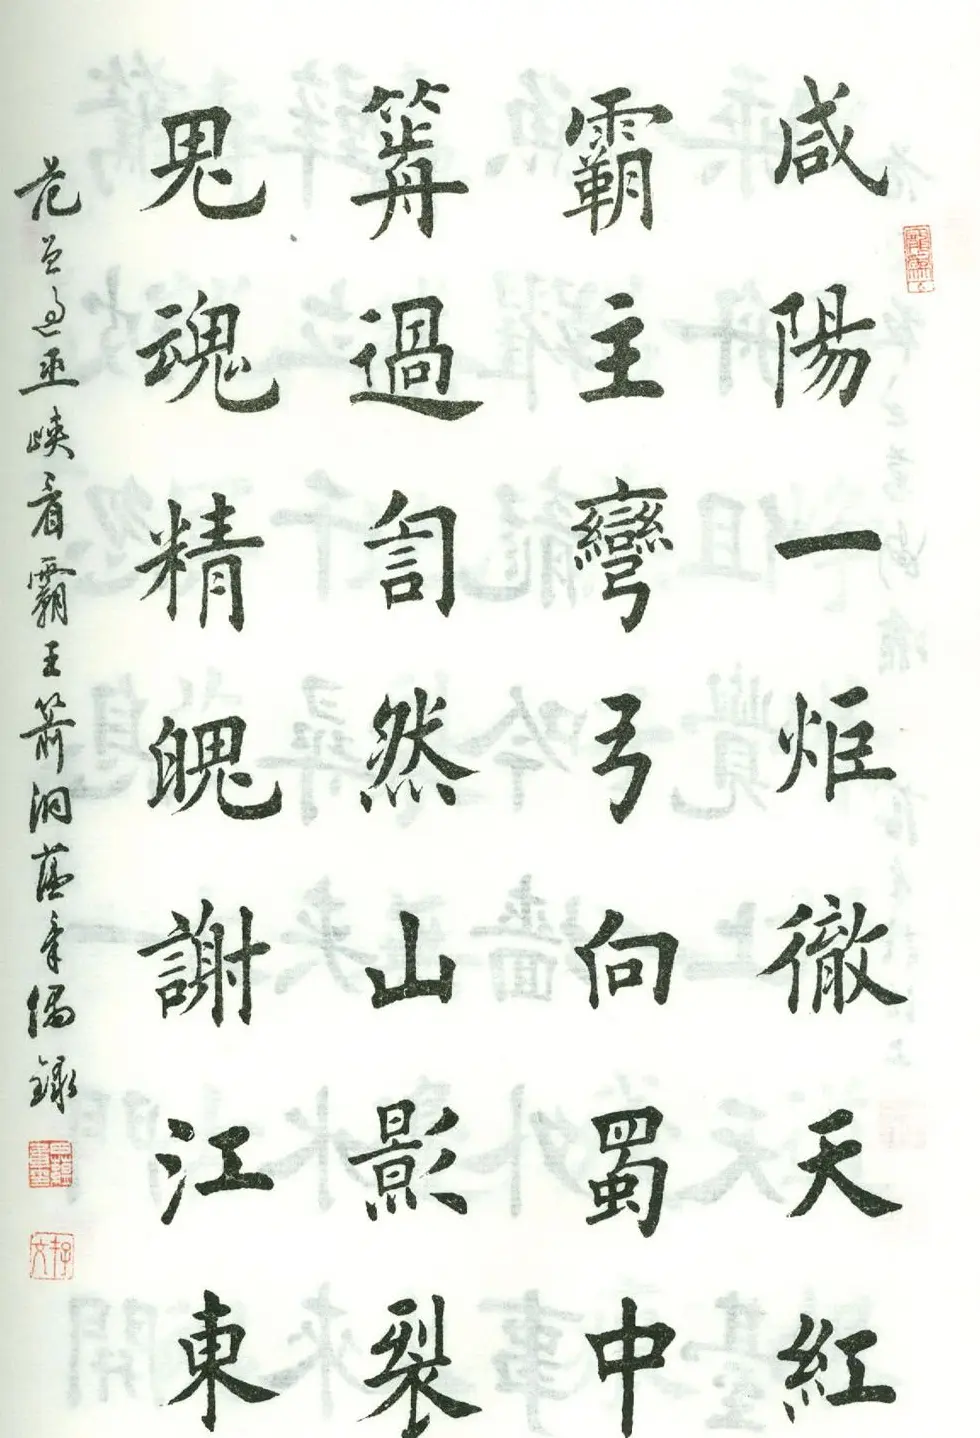 咸陽一炬徹天紅
霸主彎弓向蜀中
箭過訇然山影裂
鬼魂精魄謝江東
范曾過巫峽看霸王箭洞偶錄